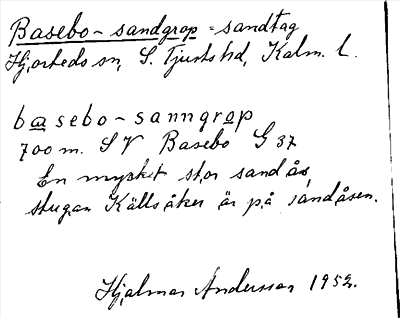 Basebo-sandgrop = sandtag
Hjorteds sn, S. Tjusts hd, Kalm. l.
basebo-sanngrop
700 m. SV Basebo G 37
En mycket stor sandås,
stugan Källsåker är på sandåsen.
Hjalmar Andersson 1952.